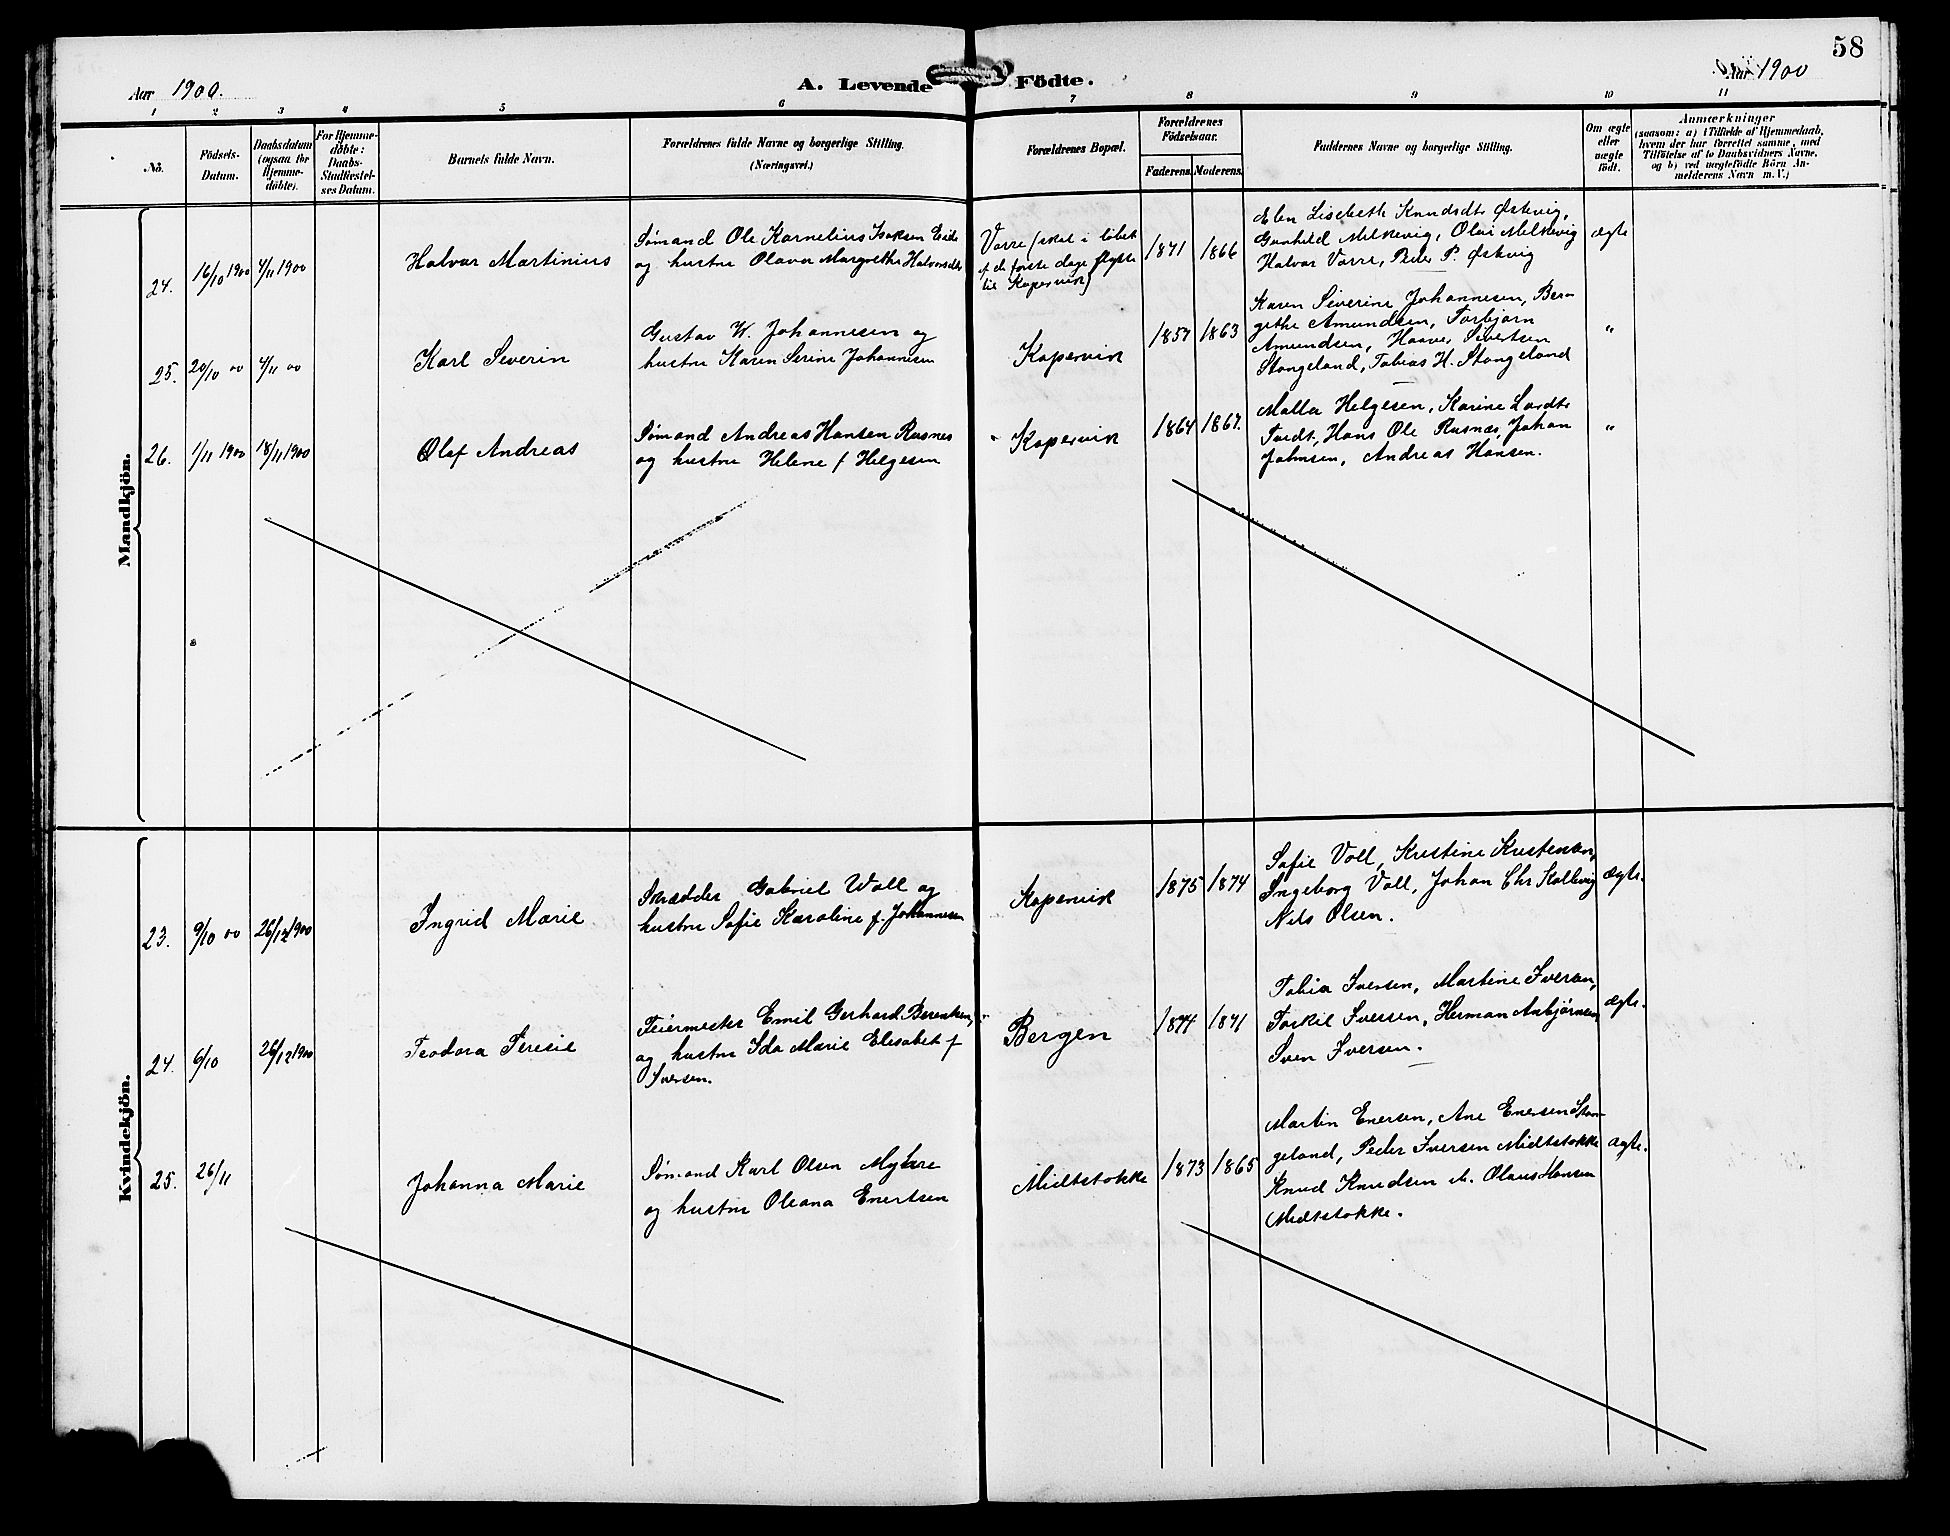 58
Aar 1900.
A. Levende Födte.
Aar 1900
1 2 3 4 5 6 7 8 9 10 11
No.
Födsels-Datum.
Daabsdatum (ogsaa for Hjemmedöbte).
For Hjemmedöbte: Daabs-Stadfæstelses Datum.
Barnets fulde Navn.
Forældrenes fulde Navne og borgerlige Stilling.
(Næringsvei.)
Forældrenes Bopæl.
Forældrenes Födselsaar.
Faderens. Moderens.
Faddernes Navne og borgerlige Stilling.
Om ægte eller uægte födt.
Anmærkninger
(saasom: a) i Tilfælde af Hjemmedaab,
hvem der har forrettet samme, med
Tilföielse af to Daabsvidners Navne,
og b) ved uægtefödte Börn An-
melderens Navn m. V.)
Mandkjön.
24. 16/10 1900 4/11 1900
Halvar Martinius
Sømand Ole Kornelius Isaksen Eide
og hustru Olava Margrethe Halvorsdtr
Vorre (skal i löbet
af de første dage flytte
til Kopervik)
1871 1866
Elen Lisebeth Knudsdtr Østevig,
Gunhild Milkevig, Olai Milkevig
Halvar Vorre, Peder P. Østevig
ægte
25. 20/10 00 4/11 00
Karl Severin
Gustav W. Johannesen og
hustru Karen Serine Johannesen
Kopervik
1857 1863
Karen Severine Johannesen, Ber-
gethe Amundsen, Torbjørn
Amundsen, Haaver Sivertsen
Stangeland, Tobias H. Stangeland
"
26. 1/11 1900 18/11 1900
Olaf Andreas
Sømand Andreas Hansen Rusnes
og hustru Helene f Helgesen
Kopervik
1864 1867.
Malla Helgesen, Karine
Hans Ole Rusnes, Johan
Johnsen, Andreas Hansen.
"
Kvindekjön.
23. 9/10 00 26/12 1900
Ingrid Marie
Skrædder Gabriel Wall og
hustru Sofie Karoline f. Johannesen
Kopervik
1875 1874
Sofie Voll, Kristine Kristensen,
Ingeborg Voll, Johan Chr Stollevig
Nils Olsen.
Ægte.
24. 6/10 26/12 1900
Teodora Teresie
Feiermester Emil Gerhard Berentsen,
og hustru Ida Marie Elisabet f
Iversen.
Bergen
1874 1871
Tobia Iversen, Martine Iversen,
Torkil Iversen, Herman Asbjørnsen
Sven Iversen.
Ægte.
25. 26/11
Johanna Marie
Sømand Karl Olsen Myhre
og hustru Oleana Enertsen
Midtstokke
1873 1865
Martin Enersen, Ane Enersen Stan-
geland, Peder Iversen Midtstokke
Knud Knudsen ib. Olaus Hansen
Midtstokke.
ægte.